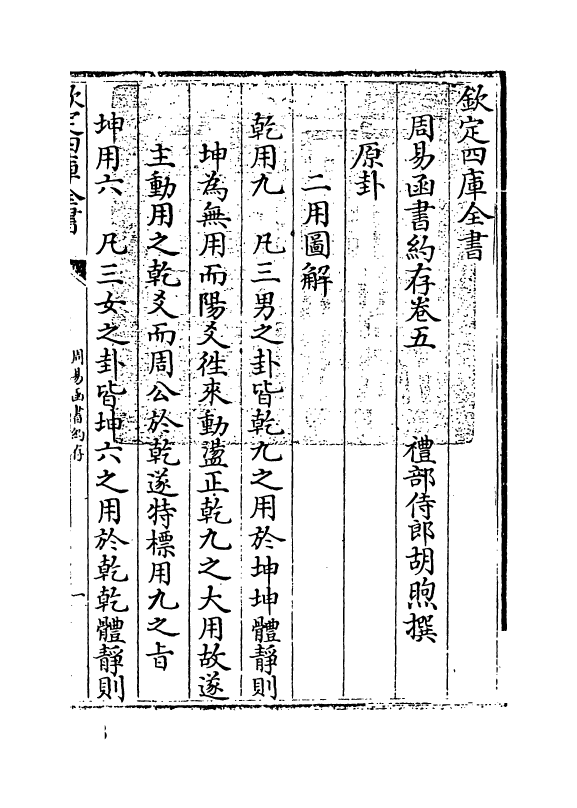 欽定四庫全書
周易函書約存卷五　　禮部侍郎胡煦撰
原卦
二用圖解
乾用九　凡三男之卦皆乾九之用於坤坤體靜則
坤為無用而陽爻徃來動盪正乾九之大用故遂
主動用之乾爻而周公於乾遂特標用九之旨
坤用六　凡三女之卦皆坤六之用於乾乾體靜則
欽定四庫全書
周易函書約存
一